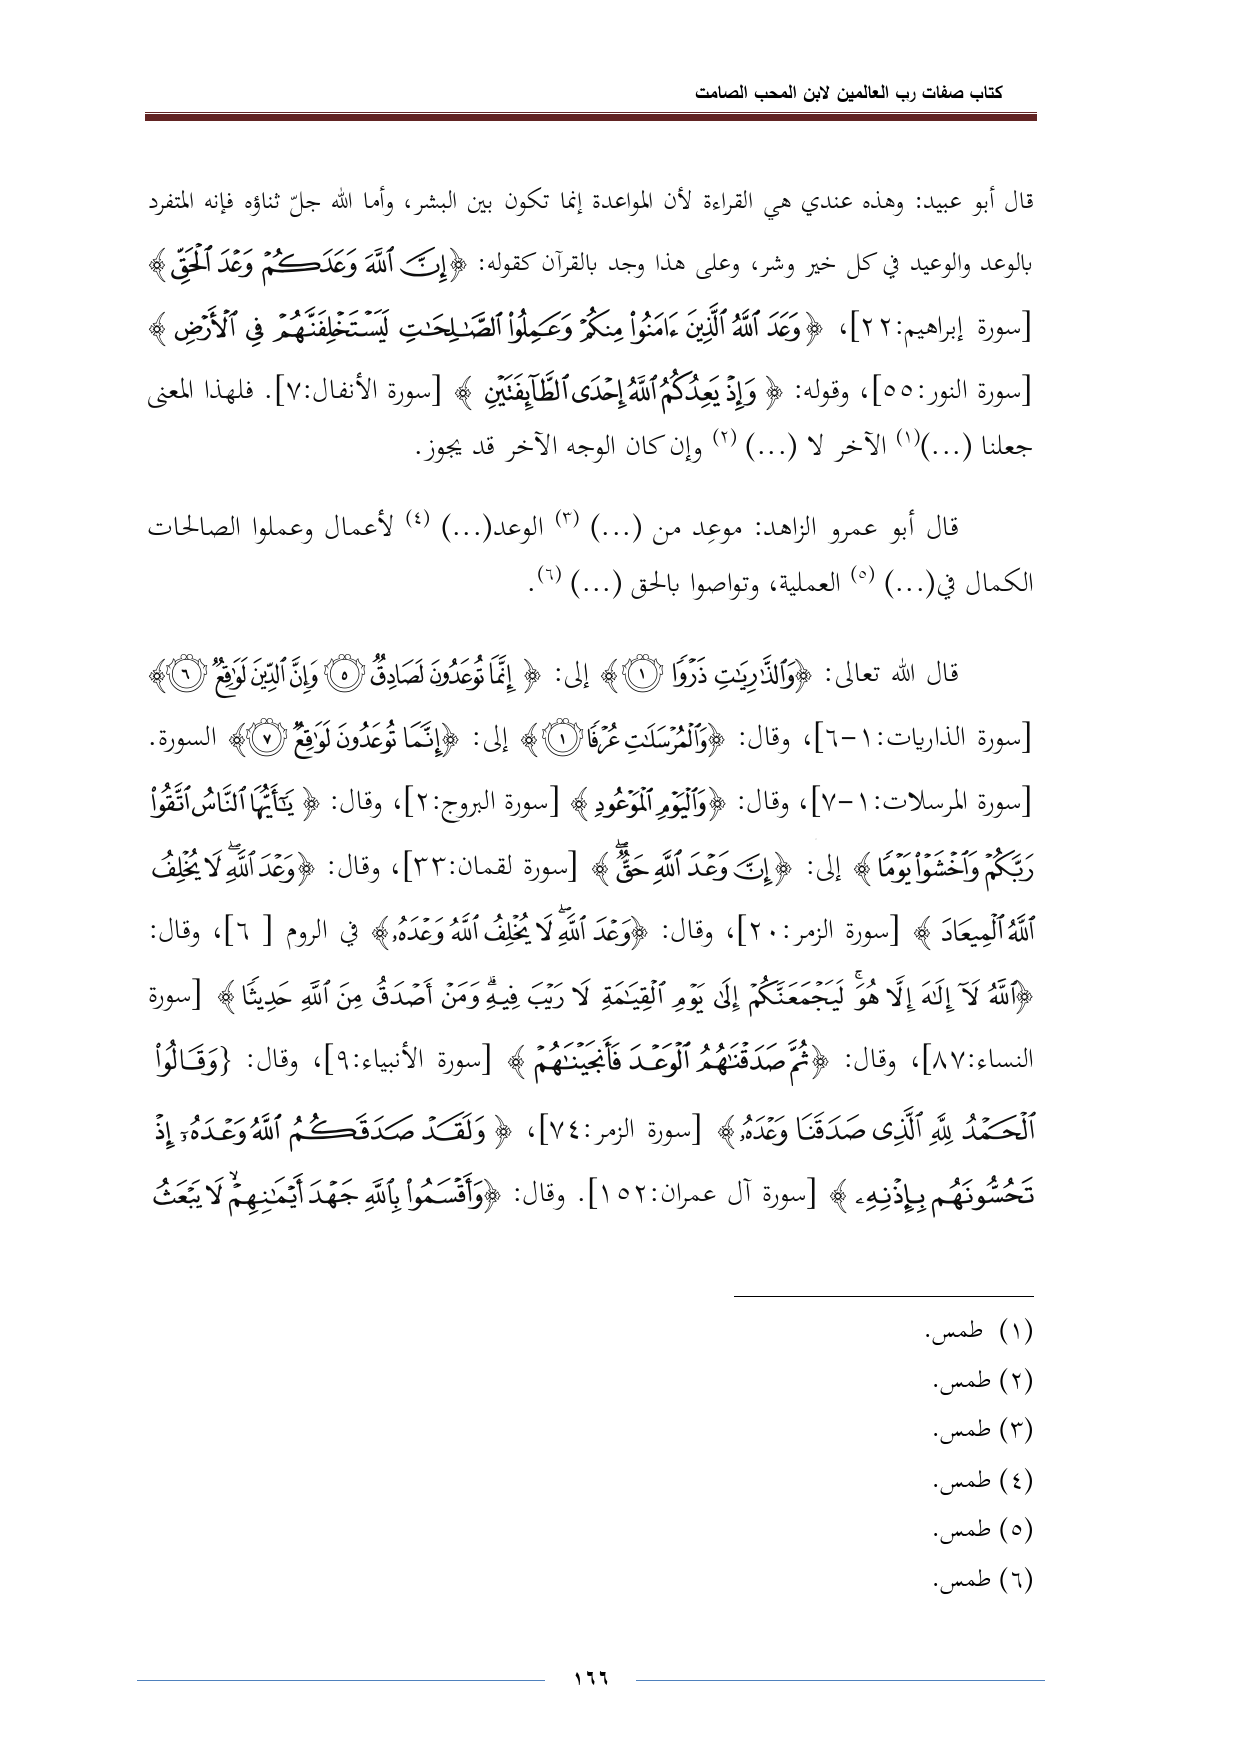 كتاب صفات رب العالمين لابن المحب الصامت
قال أبو عبيد: وهذه عندي هي القراءة لأن المواعدة إنما تكون بين البشر، وأما الله جلّ ثناؤه فإنه المتفرد
بالوعد والوعيد في كل خير وشر، وعلى هذا وجد بالقرآن كقوله: ﴿إِنَّ ٱللَّهَ وَعَدَكُمۡ وَعۡدَ ٱلۡحَقِّ﴾
[سورة إبراهيم:٢٢]، ﴿وَعَدَ ٱللَّهُ ٱلَّذِينَ ءَامَنُواْ مِنكُمۡ وَعَمِلُواْ ٱلصَّٰلِحَٰتِ لَيَسۡتَخۡلِفَنَّهُمۡ فِي ٱلۡأَرۡضِ﴾
[سورة النور:٥٥]، وقوله: ﴿ وَإِذۡ يَعِدُكُمُ ٱللَّهُ إِحۡدَى ٱلطَّآئِفَتَيۡنِ ﴾ [سورة الأنفال:٧]. فلهذا المعنى
جعلنا (...)(١) الآخر لا (...) (٢) وإن كان الوجه الآخر قد يجوز.
قال أبو عمرو الزاهد: موعِد من (...) (٣) الوعد(...) (٤) لأعمال وعملوا الصالحات
الكمال في(...) (٥) العملية، وتواصوا بالحق (...) (٦).
قال الله تعالى: ﴿وَٱلذَّٰرِيَٰتِ ذَرۡوٗا ١﴾ إلى: ﴿ إِنَّمَا تُوعَدُونَ لَصَادِقٞ ٥ وَإِنَّ ٱلدِّينَ لَوَٰقِعٞ ٦﴾
[سورة الذاريات:١-٦]، وقال: ﴿وَٱلۡمُرۡسَلَٰتِ عُرۡفٗا ١﴾ إلى: ﴿إِنَّمَا تُوعَدُونَ لَوَٰقِعٞ ٧﴾ السورة.
[سورة المرسلات:١-٧]، وقال: ﴿وَٱلۡيَوۡمِ ٱلۡمَوۡعُودِ ﴾ [سورة البروج:٢]، وقال: ﴿ يَٰٓأَيُّهَا ٱلنَّاسُ ٱتَّقُواْ
رَبَّكُمۡ وَٱخۡشَوۡاْ يَوۡمٗا ﴾ إلى: ﴿إِنَّ وَعۡدَ ٱللَّهِ حَقّٞۖ ﴾ [سورة لقمان:٣٣]، وقال: ﴿وَعۡدَ ٱللَّهِۖ لَا يُخۡلِفُ
ٱللَّهُ ٱلۡمِيعَادَ ﴾ [سورة الزمر:٢٠]، وقال: ﴿وَعۡدَ ٱللَّهِۖ لَا يُخۡلِفُ ٱللَّهُ وَعۡدَهُۥ﴾ في الروم [ ٦]، وقال:
﴿ٱللَّهُ لَآ إِلَٰهَ إِلَّا هُوَۚ لَيَجۡمَعَنَّكُمۡ إِلَىٰ يَوۡمِ ٱلۡقِيَٰمَةِ لَا رَيۡبَ فِيهِۗ وَمَنۡ أَصۡدَقُ مِنَ ٱللَّهِ حَدِيثٗا ﴾ [سورة
النساء:٨٧]، وقال: ﴿ثُمَّ صَدَقۡنَٰهُمُ ٱلۡوَعۡدَ فَأَنجَيۡنَٰهُمۡ ﴾ [سورة الأنبياء:٩]، وقال: {وَقَالُواْ
ٱلۡحَمۡدُ لِلَّهِ ٱلَّذِي صَدَقَنَا وَعۡدَهُۥ﴾ [سورة الزمر:٧٤]، ﴿ وَلَقَدۡ صَدَقَكُمُ ٱللَّهُ وَعۡدَهُۥٓ إِذۡ
تَحُسُّونَهُم بِإِذۡنِهِۦ ﴾ [سورة آل عمران:١٥٢]. وقال: ﴿وَأَقۡسَمُواْ بِٱللَّهِ جَهۡدَ أَيۡمَٰنِهِمۡۙ لَا يَبۡعَثُ
(١) طمس.
(٢) طمس.
(٣) طمس.
(٤) طمس.
(٥) طمس.
(٦) طمس.
١٦٦